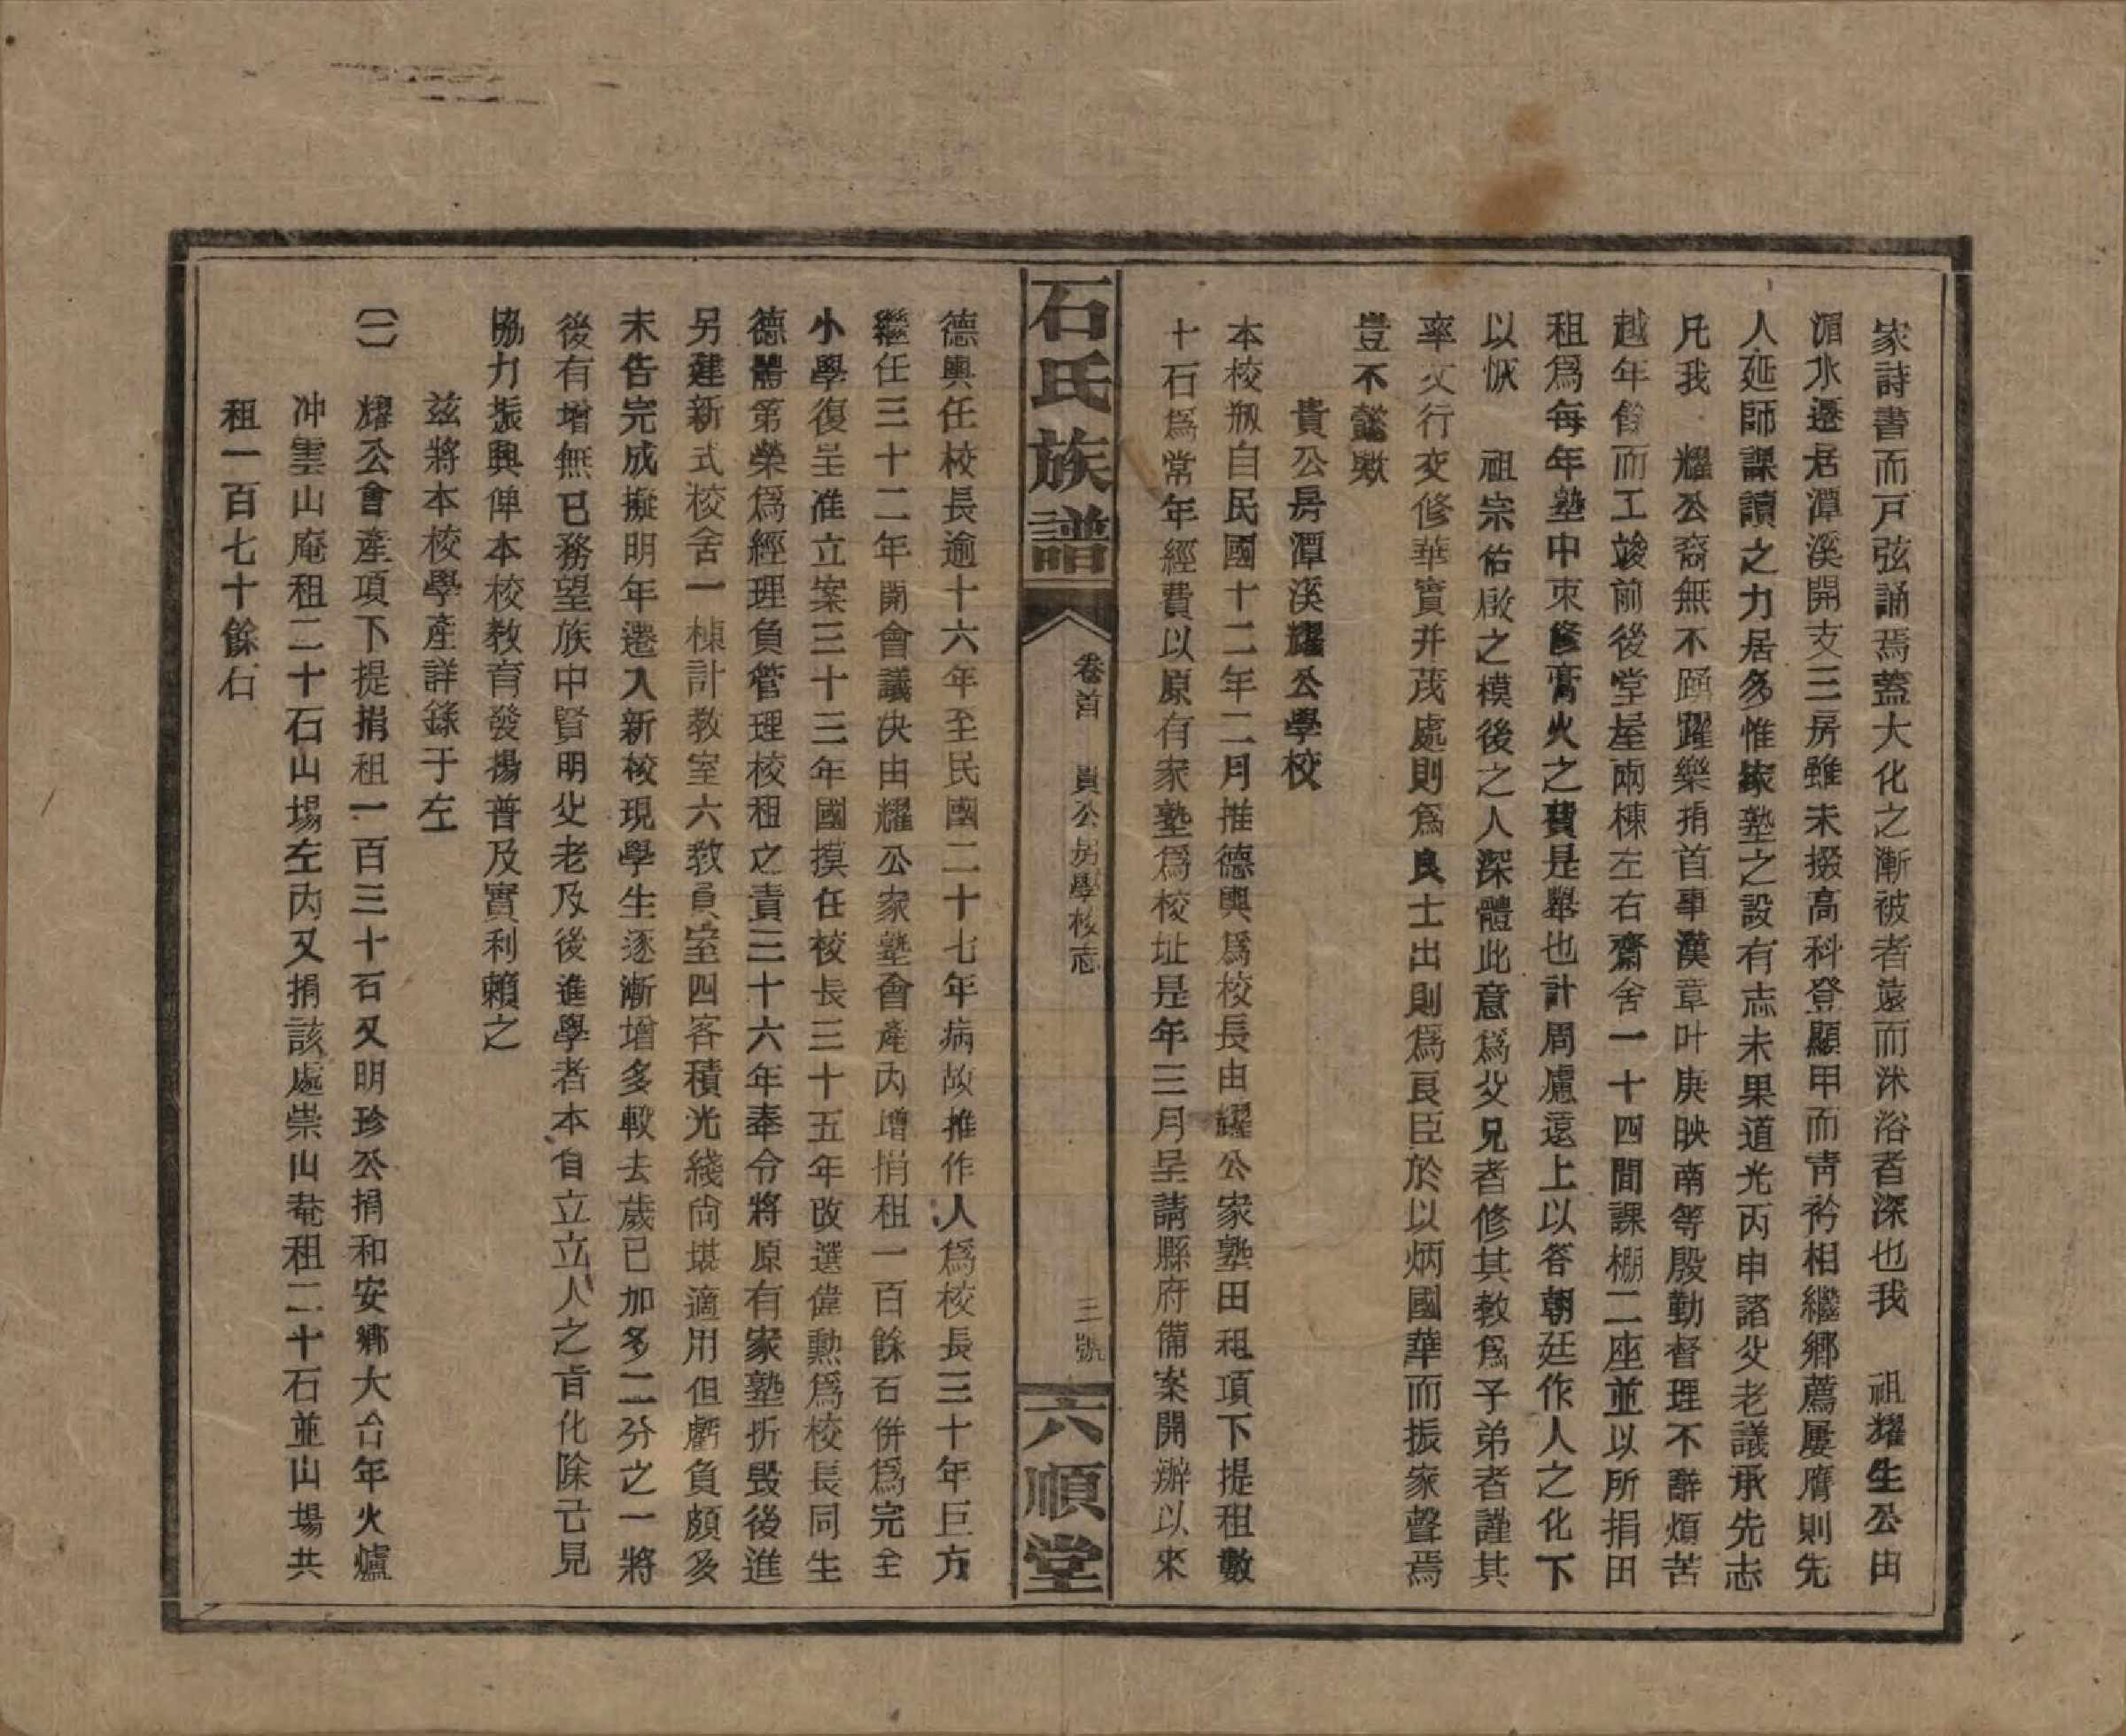 家詩書而戶弦誦焉蓋大化之漸被者遠而沐浴者深也我　祖耀生公由
湄水遷居潭溪開支三房雖未掇高科登顯甲而靑衿相繼鄉薦屢膺則先
人延師課讀之力居多惟家塾之設有志未果道光丙申諸父老議承先志
凡我　耀公裔無不踴躍樂捐首事漢章叶庚映南等殷勤督理不辭煩苦
越年餘而工竣前後堂屋兩棟左右齋舍一十四間課棚二座並以所捐田
租爲每年塾中束修膏火之費是舉也計周慮遠上以答朝廷作人之化下
以恢　祖宗佑啟之模後之人深體此意爲父兄者修其教爲子弟者謹其
率文行交修華實并茂處則爲良士出則爲良臣於以炳國華而振家聲焉
豈不懿歟
貴公房潭溪耀公學校
本校剏自民國十二年二月推德輿爲校長由耀公家塾田租項下提租數
十石爲常年經費以原有家塾爲校址是年三月呈請縣府備案開辦以來
石氏族譜　卷首　貴公房學校志　三號　六順堂
德輿任校長逾十六年至民國二十七年病故推作人爲校長三十年巨方
繼任三十二年開會議決由耀公家塾會產內增捐租一百餘石併爲完全
小學復呈准立案三十三年國摸任校長三十五年改選偉勲爲校長同生
德體第榮爲經理負管理校租之責三十六年奉令將原有家塾折毀後進
另建新式校舍一棟計教室六教員室四客積光綫尙堪適用但虧負頗多
未告完成擬明年遷入新校現學生逐漸增多較去歲已加多二分之一將
後有增無已務望族中賢明父老及後進學者本自立立人之旨化除己見
協力振興俾本校教育發揚普及實利賴之
茲將本校學產詳錄于左
㈠　耀公會產項下提捐租一百三十石又明珍公捐和安鄉大台年火爐
冲雲山庵租二十石山場左內又捐該處崇山菴租二十石並山場共
租一百七十餘石